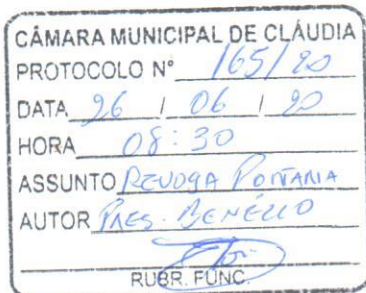 CÂMARA MUNICIPAL DE CLÁUDIA
PROTOCOLO Nº 165/20
DATA 26 / 06 / 20
HORA 08:30
ASSUNTO REVOGA PORTARIA
AUTOR PRES. BENÉLIO
RUBR. FUNC.